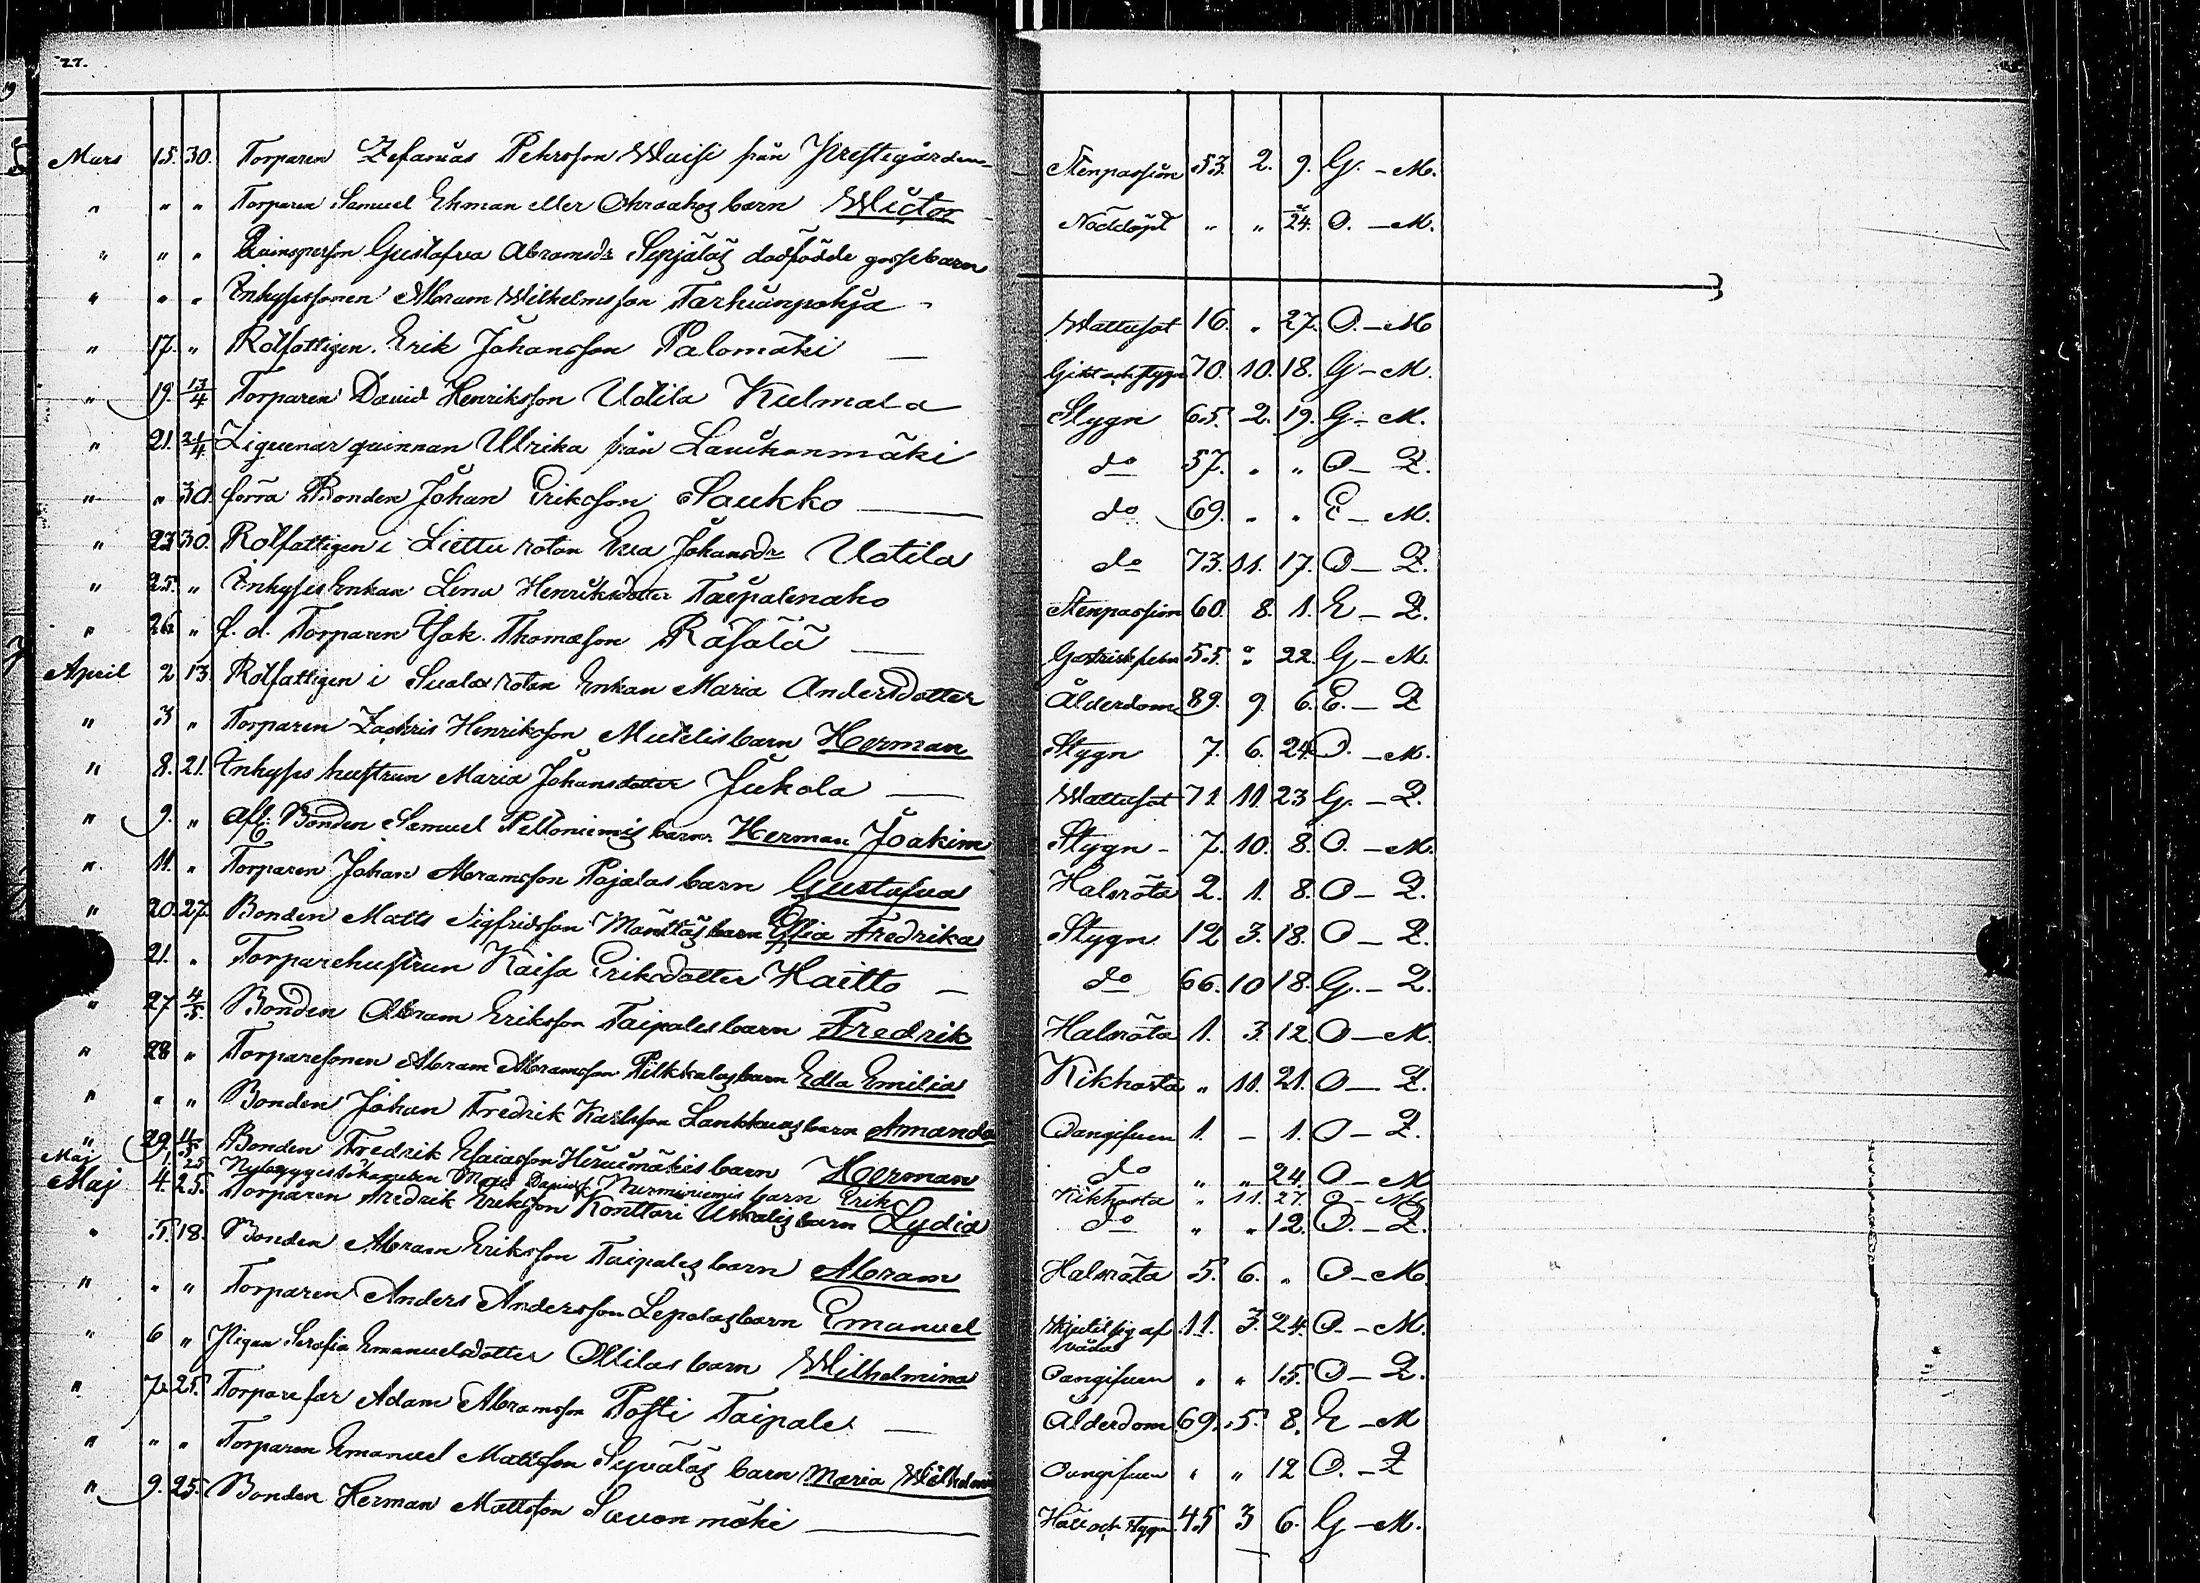 27.
Mars 15. 30. Torparen Zefanias Pehrsson Waisi från Prestegården Stenpassion 53. 2. 9. G. - M.
" " " Torparen Samuel Ekman eller Ahraahos barn Wictor Nöddöpt " " 24. O. - M.
" " " Qvinsperson Gustafva Abramsdr Sepjäläs dödfödde gossebarn
" " " Inhysessonen Abram Wilhelmsson Tarhianpohja Wattusot 16. " 27. O. - M
" 17. " Rotfattigen Erik Johansson Palomäki Gikt och stygn 70. 10. 18. G - M.
" 19. 13/4 Torparen David Henriksson Udila Kulmala Stygn 65. 2. 19. G - M.
" 21. 21/4 Ziguenar quinnan Ulrika från Laukonmäki do 57. " " O - Q.
" " 30. förra Bonden Johan Eriksson Saukko do 69. " " E - M.
" 23 30. Rotfattigen i Liettu rotan Eva Johansdr Uotila do 73. 11. 17. O - Q.
" 25. " Inhyses Enkan Lena Henriksdotter Taipalenaho Stenpassion 60. 8. 1. E - Q.
" 26 " f. d. Torparen Isak Thomasson Rajala Gastrisk feber 55. " 22. G - M.
April 2 13. Rotfattigen i Suala rotan Enkan Maria Andersdotter Ålderdom 89. 9. 6. E. - Q
" 3 " Torparen Zachris Henriksson barn Herman Stygn 7. 6. 24 O. - M.
" 8. 21. Inhyses hustrun Maria Johansdotter Jukola Wattusot 71. 11. 23 G. - Q.
" 9. " Afl. Bonden Samuel Peltoniemis barn Herman Joakim Stygn - 7. 10. 8. O. - M.
" 11. " Torparen Johan Abramsson Pajalas barn Gustafva Halsröta 2. 1. 8. O - Q.
" 20. 27. Bonden Matts Sigfridsson Mänttäs barn Fredrika Stygn 12 3. 18. O - Q.
21. " Torparehustrun Kaisa Eriksdotter Haitto do 66. 10 18. G. - Q.
" 27 4/5. Bonden Abram Eriksson Taipales barn Fredrik Halsröta 1. 3. 12. O - M.
" 28 " Torparesonen Abram Abramsson Pilkkalas barn Edla Emilia Kikhosta " 11. 21. O - Q.
" " " Bonden Johan Fredrik Karlsson Lankkuas barn Amanda Oangifven 1. - 1. O - Q.
" 29. 11/5 Bonden Fredrik Esaiasson barn Herman do " " 24. O - M
Maj 25 Nybyggessökanden Davids. Nurminiemis barn Erik Kikhosta " 11. 27. O - M.
Maj 4. 25. Torparen Fredrik Eriksson Konttori Uskalis barn Lydia do " " 12. O. - Q.
" 5. 18. Bonden Abram Eriksson Taipales barn Abram Halsröta 5. 6. " O - M.
" " " Torparen Anders Andersson Lepolas barn Emanuel skjutit sig af våda 11. 3. 24. O. - M.
" 6 " Pigan Serafia Emanuelsdotter Ollilas barn Wilhelmina Oangifven " " 15. O - Q.
" 7. 25. Torpare far Adam Abramsson Posti Taipale Ålderdom 69. 5. 8. E - M
" " " Torparen Emanuel Mattsson Syväläs barn Maria Wilhelmina Oangifven " " 12 O. - Q
" 9. 25. Bonden Herman Mattsson Savonmäki Håll och stygn 45 3 6. G - M.